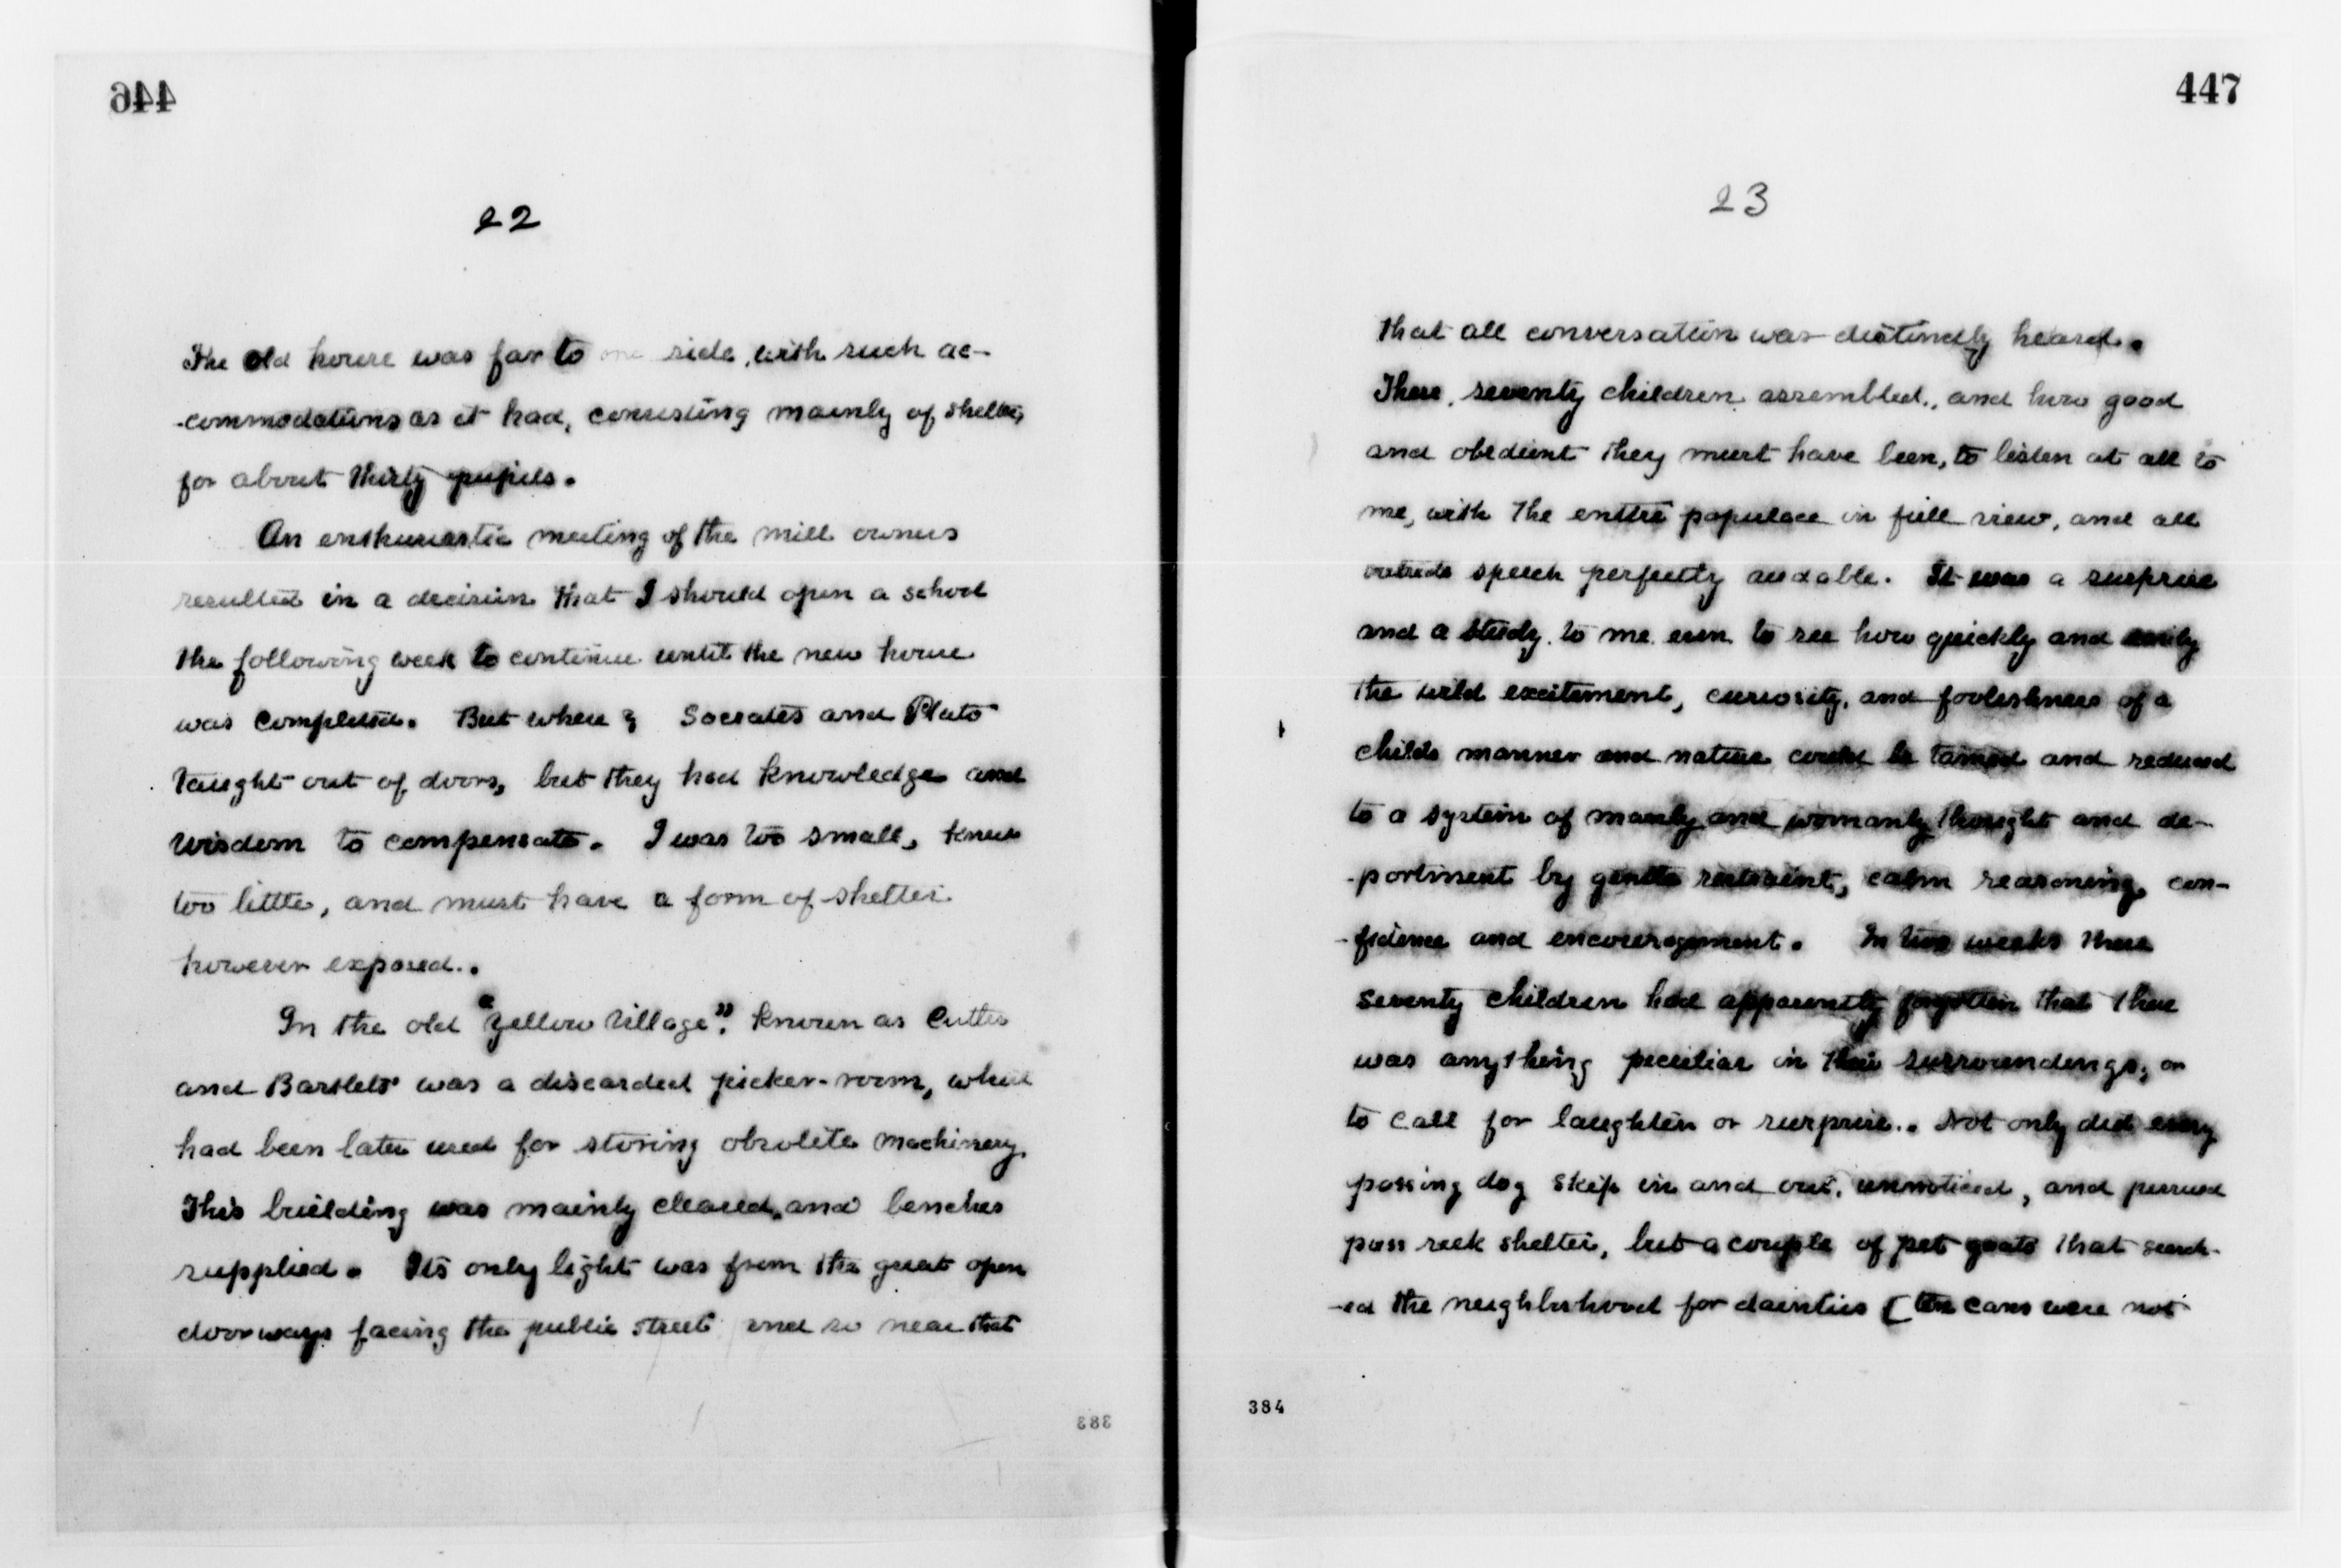 446
22
The old house was far to one side, with such ac-
-commodations as it had, consisting mainly of shelter,
for about thirty pupils.
An enthusiastic meeting of the mill owners
resulted in a decision that I should open a school
the following week to continue until the new house
was completed. But where? Socrates and Plato
taught out of doors, but they had knowledge and
wisdom to compensate. I was too small, knew
too little, and must have a form of shelter
however exposed.
In the old "Yellow Village", known as Cutler
and Bartlets was a discarded picker-room, which
had been later used for storing obsolete machinery.
This building was mainly cleared, and benches
supplied. Its only light was from the great open
doorways facing the public street and so near that
383
447
23
that all conversation was distinctly heard.
There, seventy children assembled, and how good
and obedient they must have been, to listen at all to
me, with the entire populace in full view, and all
outside speech perfectly audable. It was a surprise
and a study to me even to see how quickly and easily
the wild excitement, curiosity, and foolishness of a
childs manner and nature could be tamed and reduced
to a system of manly and womanly thought and de-
-portment by gentle restraint, calm reasoning, con-
-fidence and encouragement. In two weeks these
seventy children had apparently forgotten that there
was anything peculiar in their surroundings, or
to call for laughter or surprise. Not only did every
passing dog skip in and out, unnoticed, and pursued
puss seek shelter, but a couple of pet goats that search-
-ed the neighborhood for dainties [tin cans were not
384